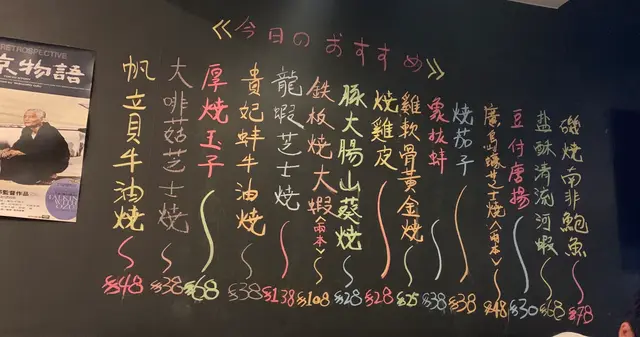 《今日のおすすめ》
磯燒南非鮑魚 $78
鹽酥清流河蝦 $68
豆付唐揚 $30
廣島蠔芝士燒(兩本) $48
燒茄子 $38
象拔蚌 $38
雞軟骨黃金燒 $25
燒雞皮 $28
豚大腸山葵燒 $28
鉄板燒大蝦(兩本) $108
龍蝦芝士燒 $138
貴妃蚌牛油燒 $38
厚燒玉子 $68
大啡菇芝士燒 $38
帆立貝牛油燒 $48
RETROSPECTIVE
京物語
監督作品